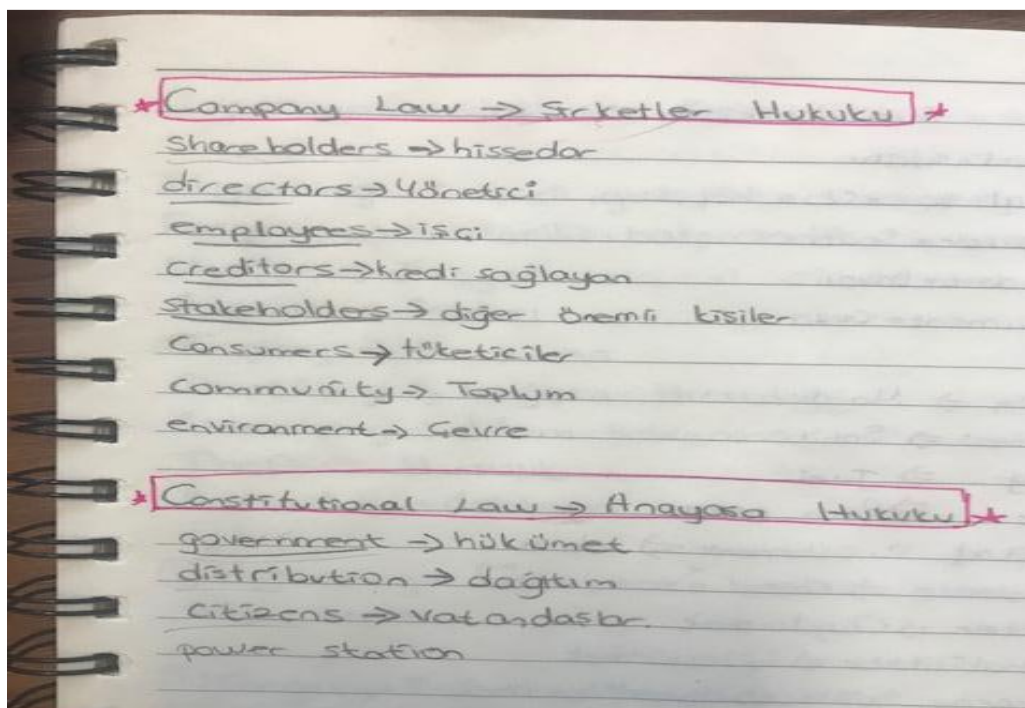 * Company Law → Şirketler Hukuku *
Shareholders → hissedar
directors → Yönetici
employees → işçi
Creditors → kredi sağlayan
Stakeholders → diğer önemli kişiler
Consumers → tüketiciler
Community → Toplum
environment → Çevre
* Constitutional Law → Anayasa Hukuku *
government → hükümet
distribution → dağıtım
Citizens → vatandaşlar.
power station